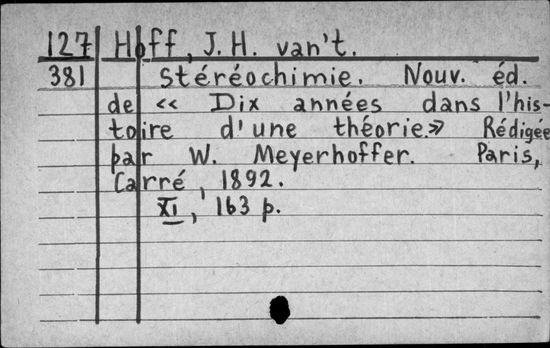 127 Hoff, J. H. van't.
381 Stéréochimie. Nouv. éd.
de « Dix années dans l'his-
toire d'une théorie.» Rédigée
par W. Meyerhoffer. Paris,
Carré, 1892.
XI, 163 p.